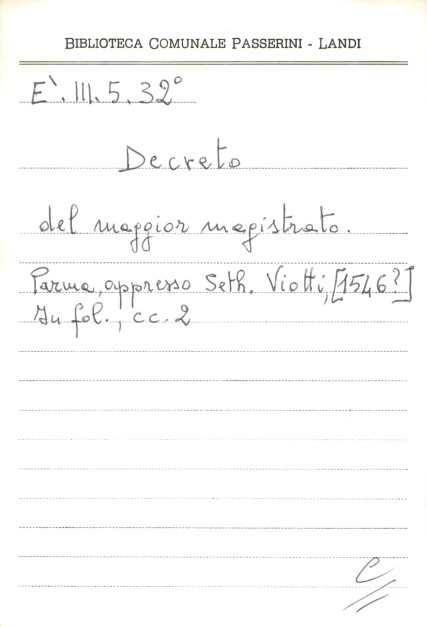 BIBLIOTECA COMUNALE PASSERINI - LANDI
E`. III. 5. 32°
Decreto
del maggior magistrato.
Parma, appresso Seth. Viotti, [1546?]
In fol., cc. 2
C